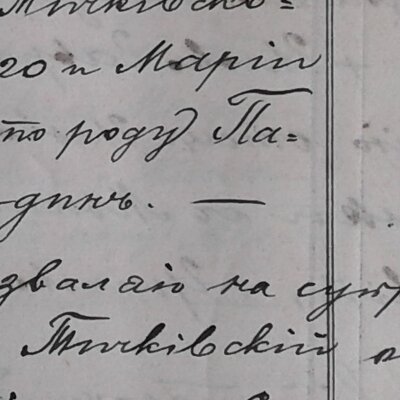 Тичківско=
го и Маріи
по роду Па=
динъ. —
зваляю на суп
Тичківскій